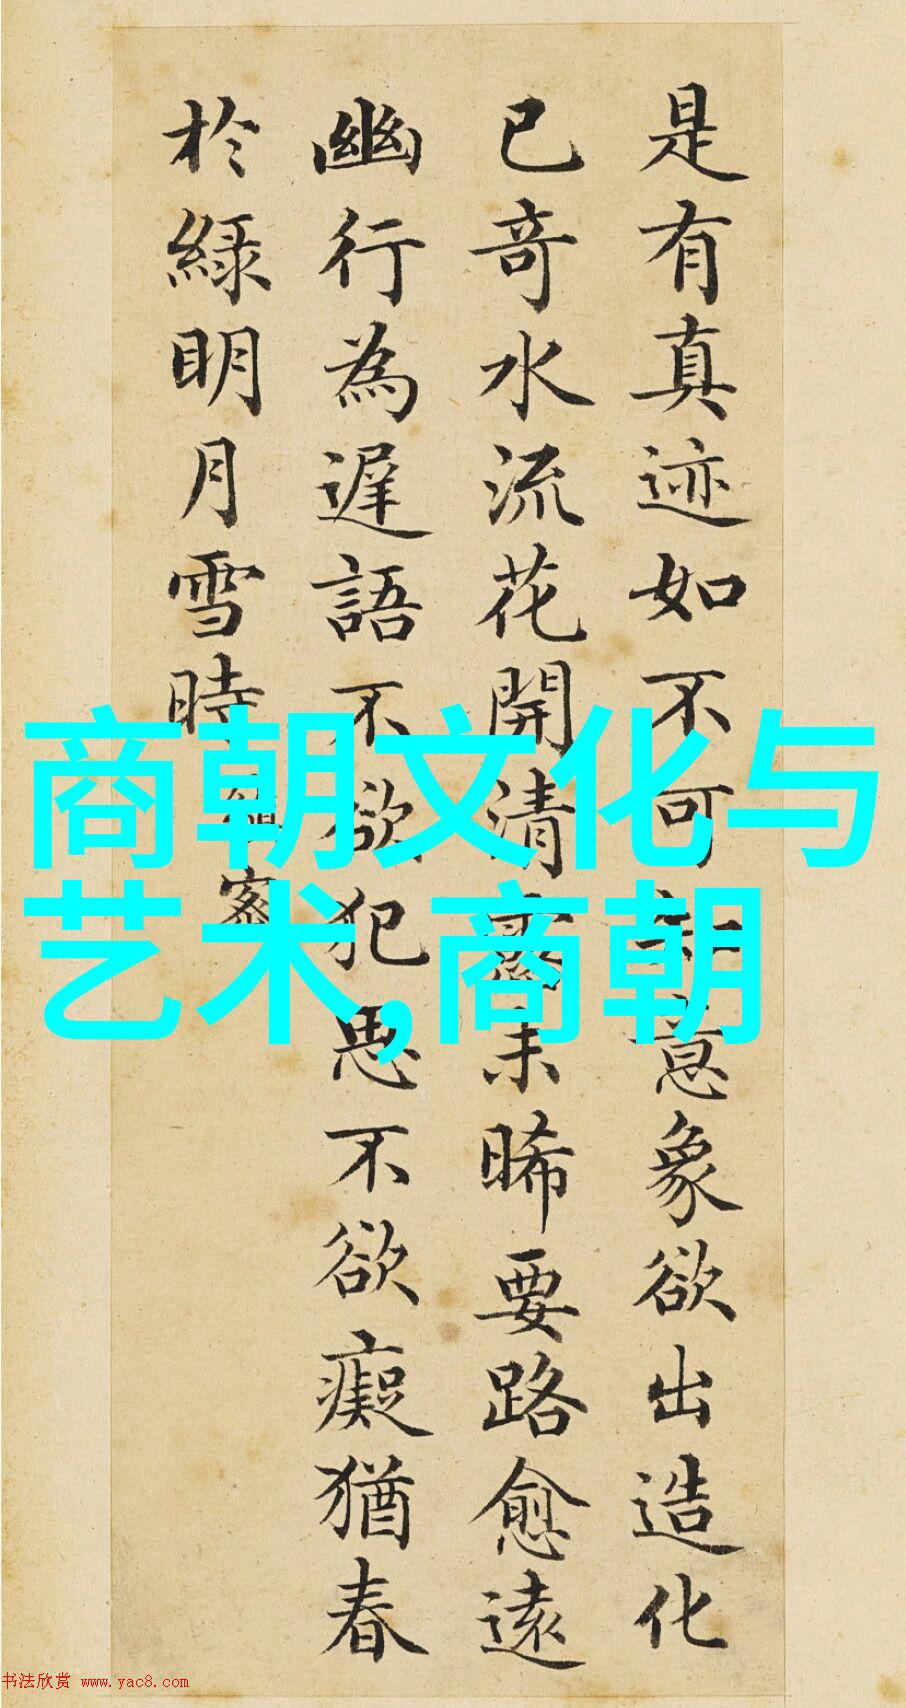 是有真迹如不可知意象欲出造化
已奇水流花開清露未晞要路愈遠
幽行為遲語不欲犯思不欲癡猶春
於綠明月雪時
縝密
商朝文化与
艺术,商朝
书法欣赏 www.yac8.com